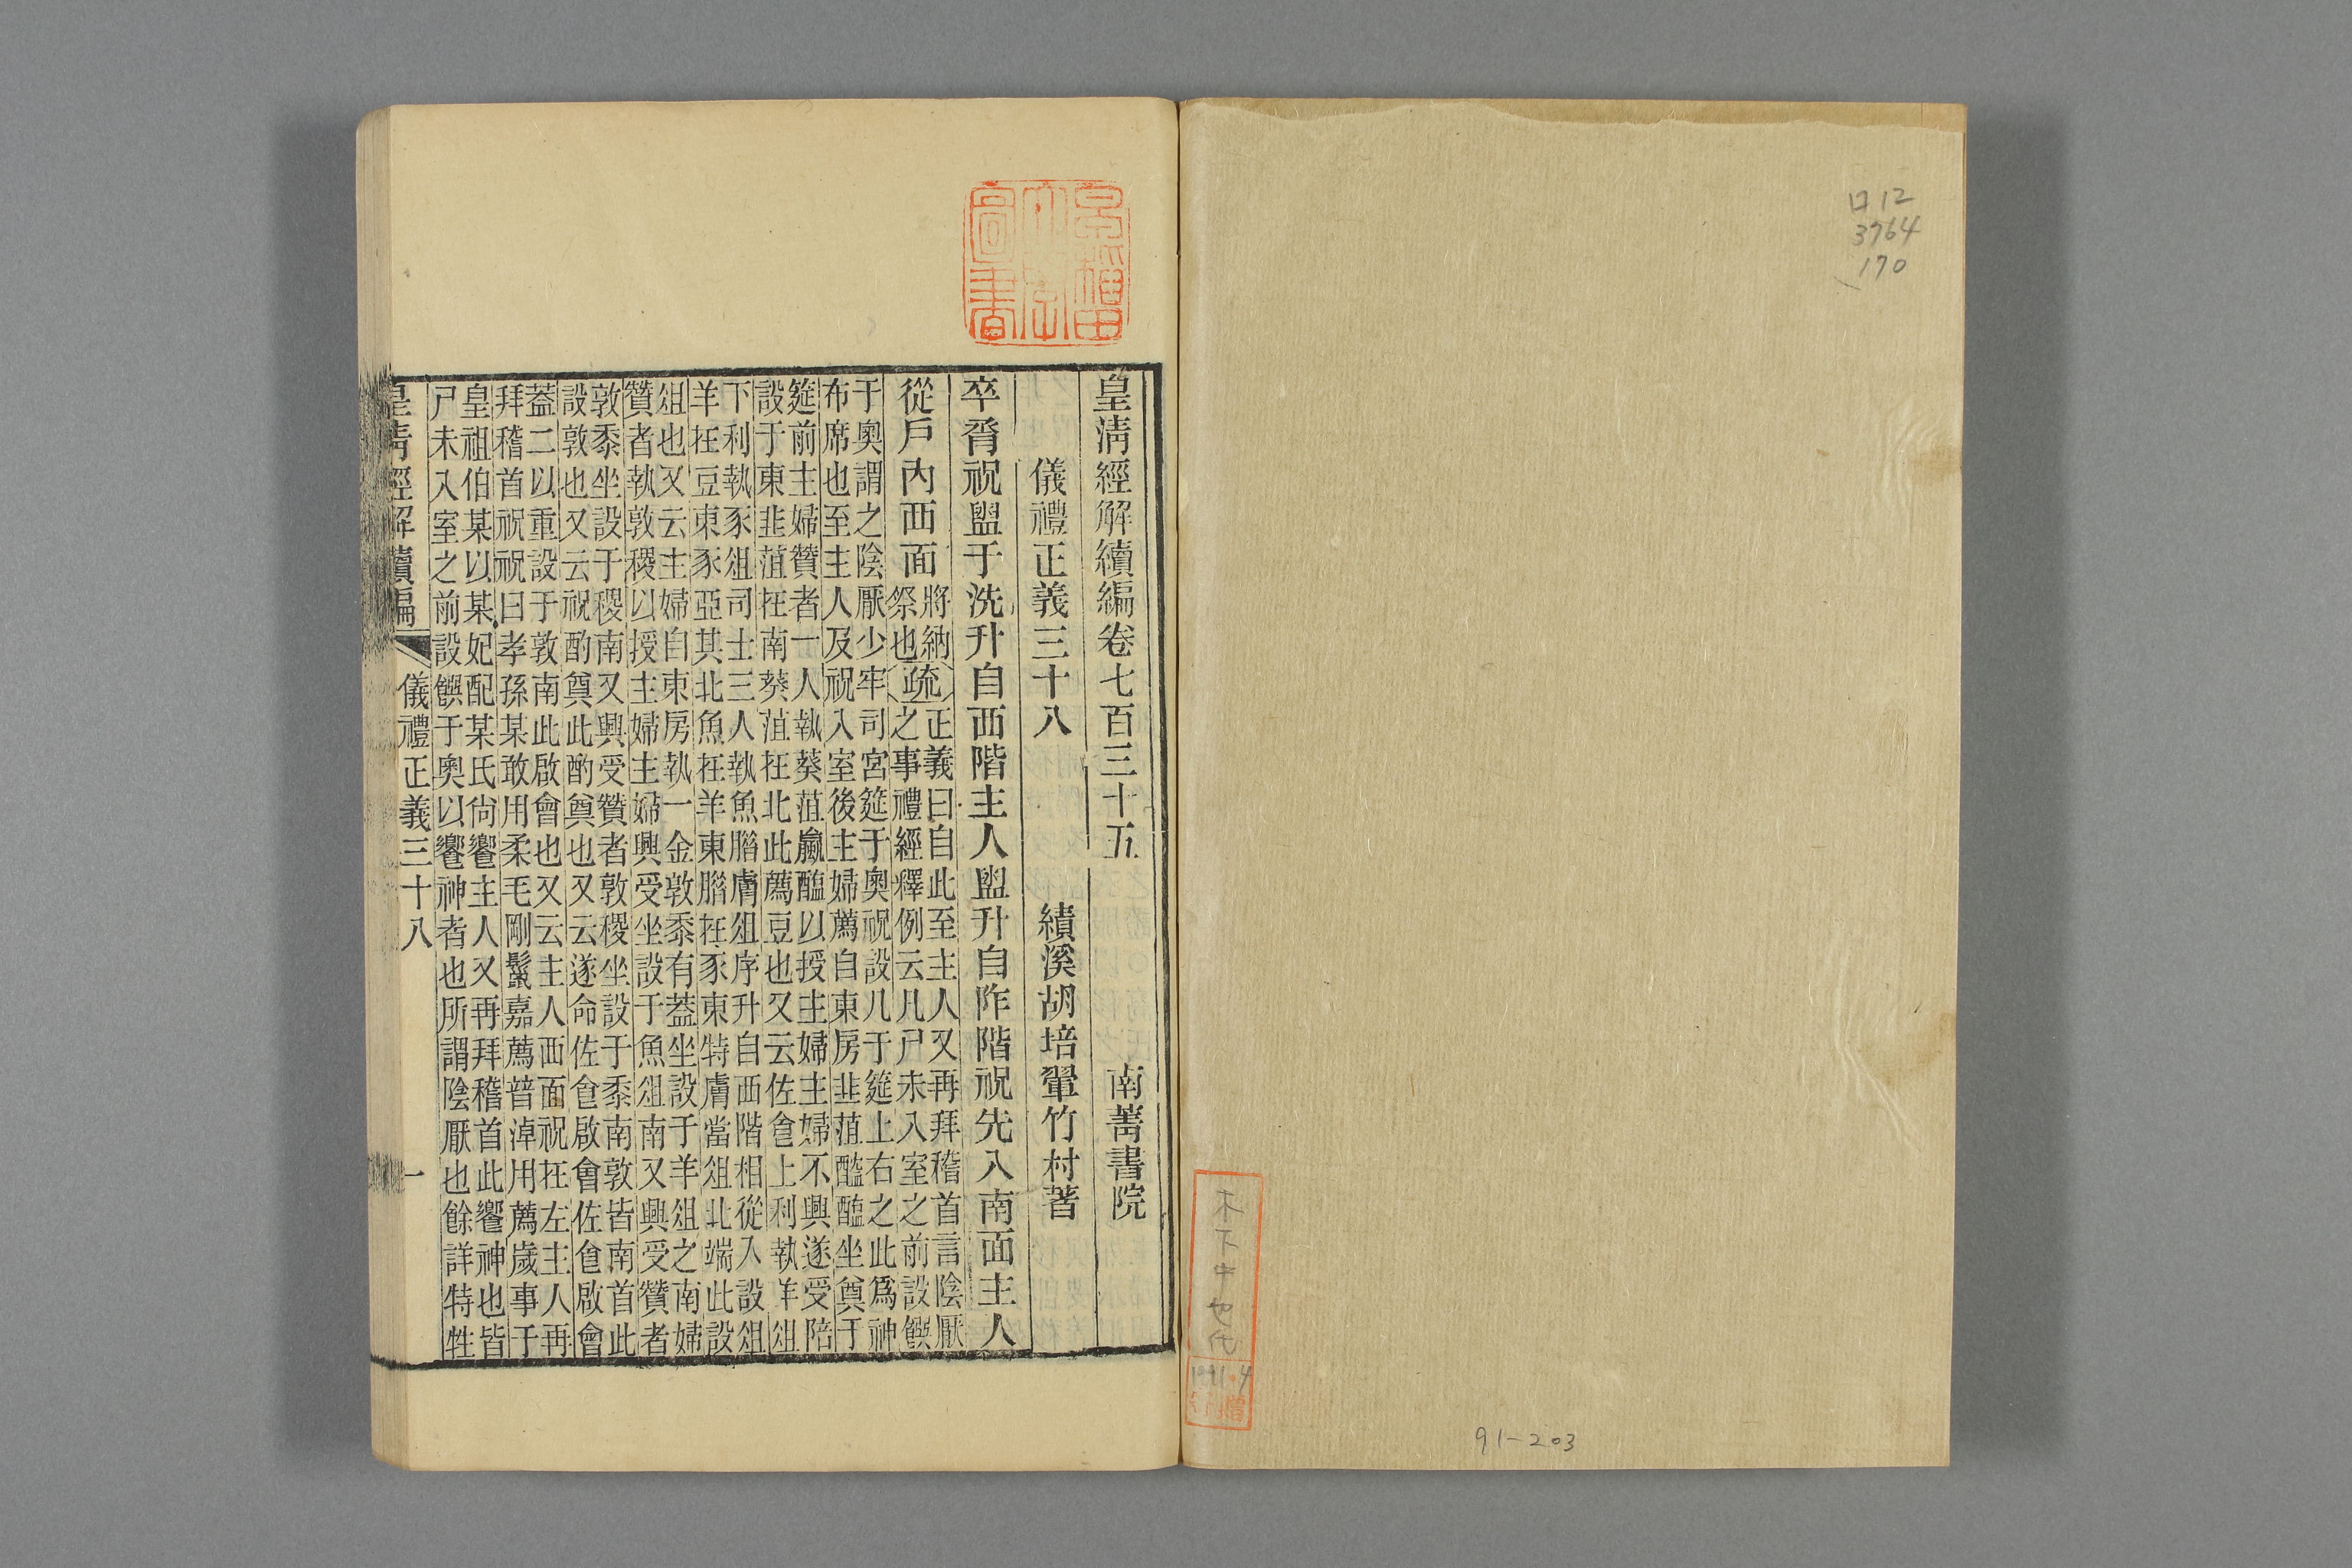 口12
3764
170
木下中也氏
1991.4
寄贈
91-203
皇清經解續編卷七百三十五　南菁書院
儀禮正義三十八　績溪胡培翬竹村著
卒脀祝盥于洗升自西階主人盥升自阼階祝先入南面主人
從戶內西面將納祭也疏正義曰自此至主人又再拜稽首言陰厭
之事禮經釋例云凡尸未入室之前設饌
于奧謂之陰厭少牢司宮筵于奧祝設几于筵上右之此爲神
布席也至主人及祝入室後主婦薦自東房韭菹醓醢坐奠于
筵前主婦贊者一人執葵菹蠃醢以授主婦主婦不興遂受陪
設于東韭菹在南葵菹在北此薦豆也又云佐食上利執羊俎
下利執豕俎司士三人執魚腊膚俎序升自西階相從入設俎
羊在豆東豕亞其北魚在羊東腊在豕東特膚當俎北端此設
俎也又云主婦自東房執一金敦黍有蓋坐設于羊俎之南婦
贊者執敦稷以授主婦主婦興受坐設于魚俎南又興受贊者
敦黍坐設于稷南又興受贊者敦稷坐設于黍南敦皆南首此
設敦也又云祝酌奠此酌奠也又云遂命佐食啟會佐食啟會
蓋二以重設于敦南此啟會也又云主人西面祝在左主人再
拜稽首祝祝曰孝孫某敢用柔毛剛鬣嘉薦普淖用薦歲事于
皇祖伯某以某妃配某氏尚饗主人又再拜稽首此饗神也皆
尸未入室之前設饌于奧以饗神者也所謂陰厭也餘詳特牲
皇清經解續編　儀禮正義三十八　一